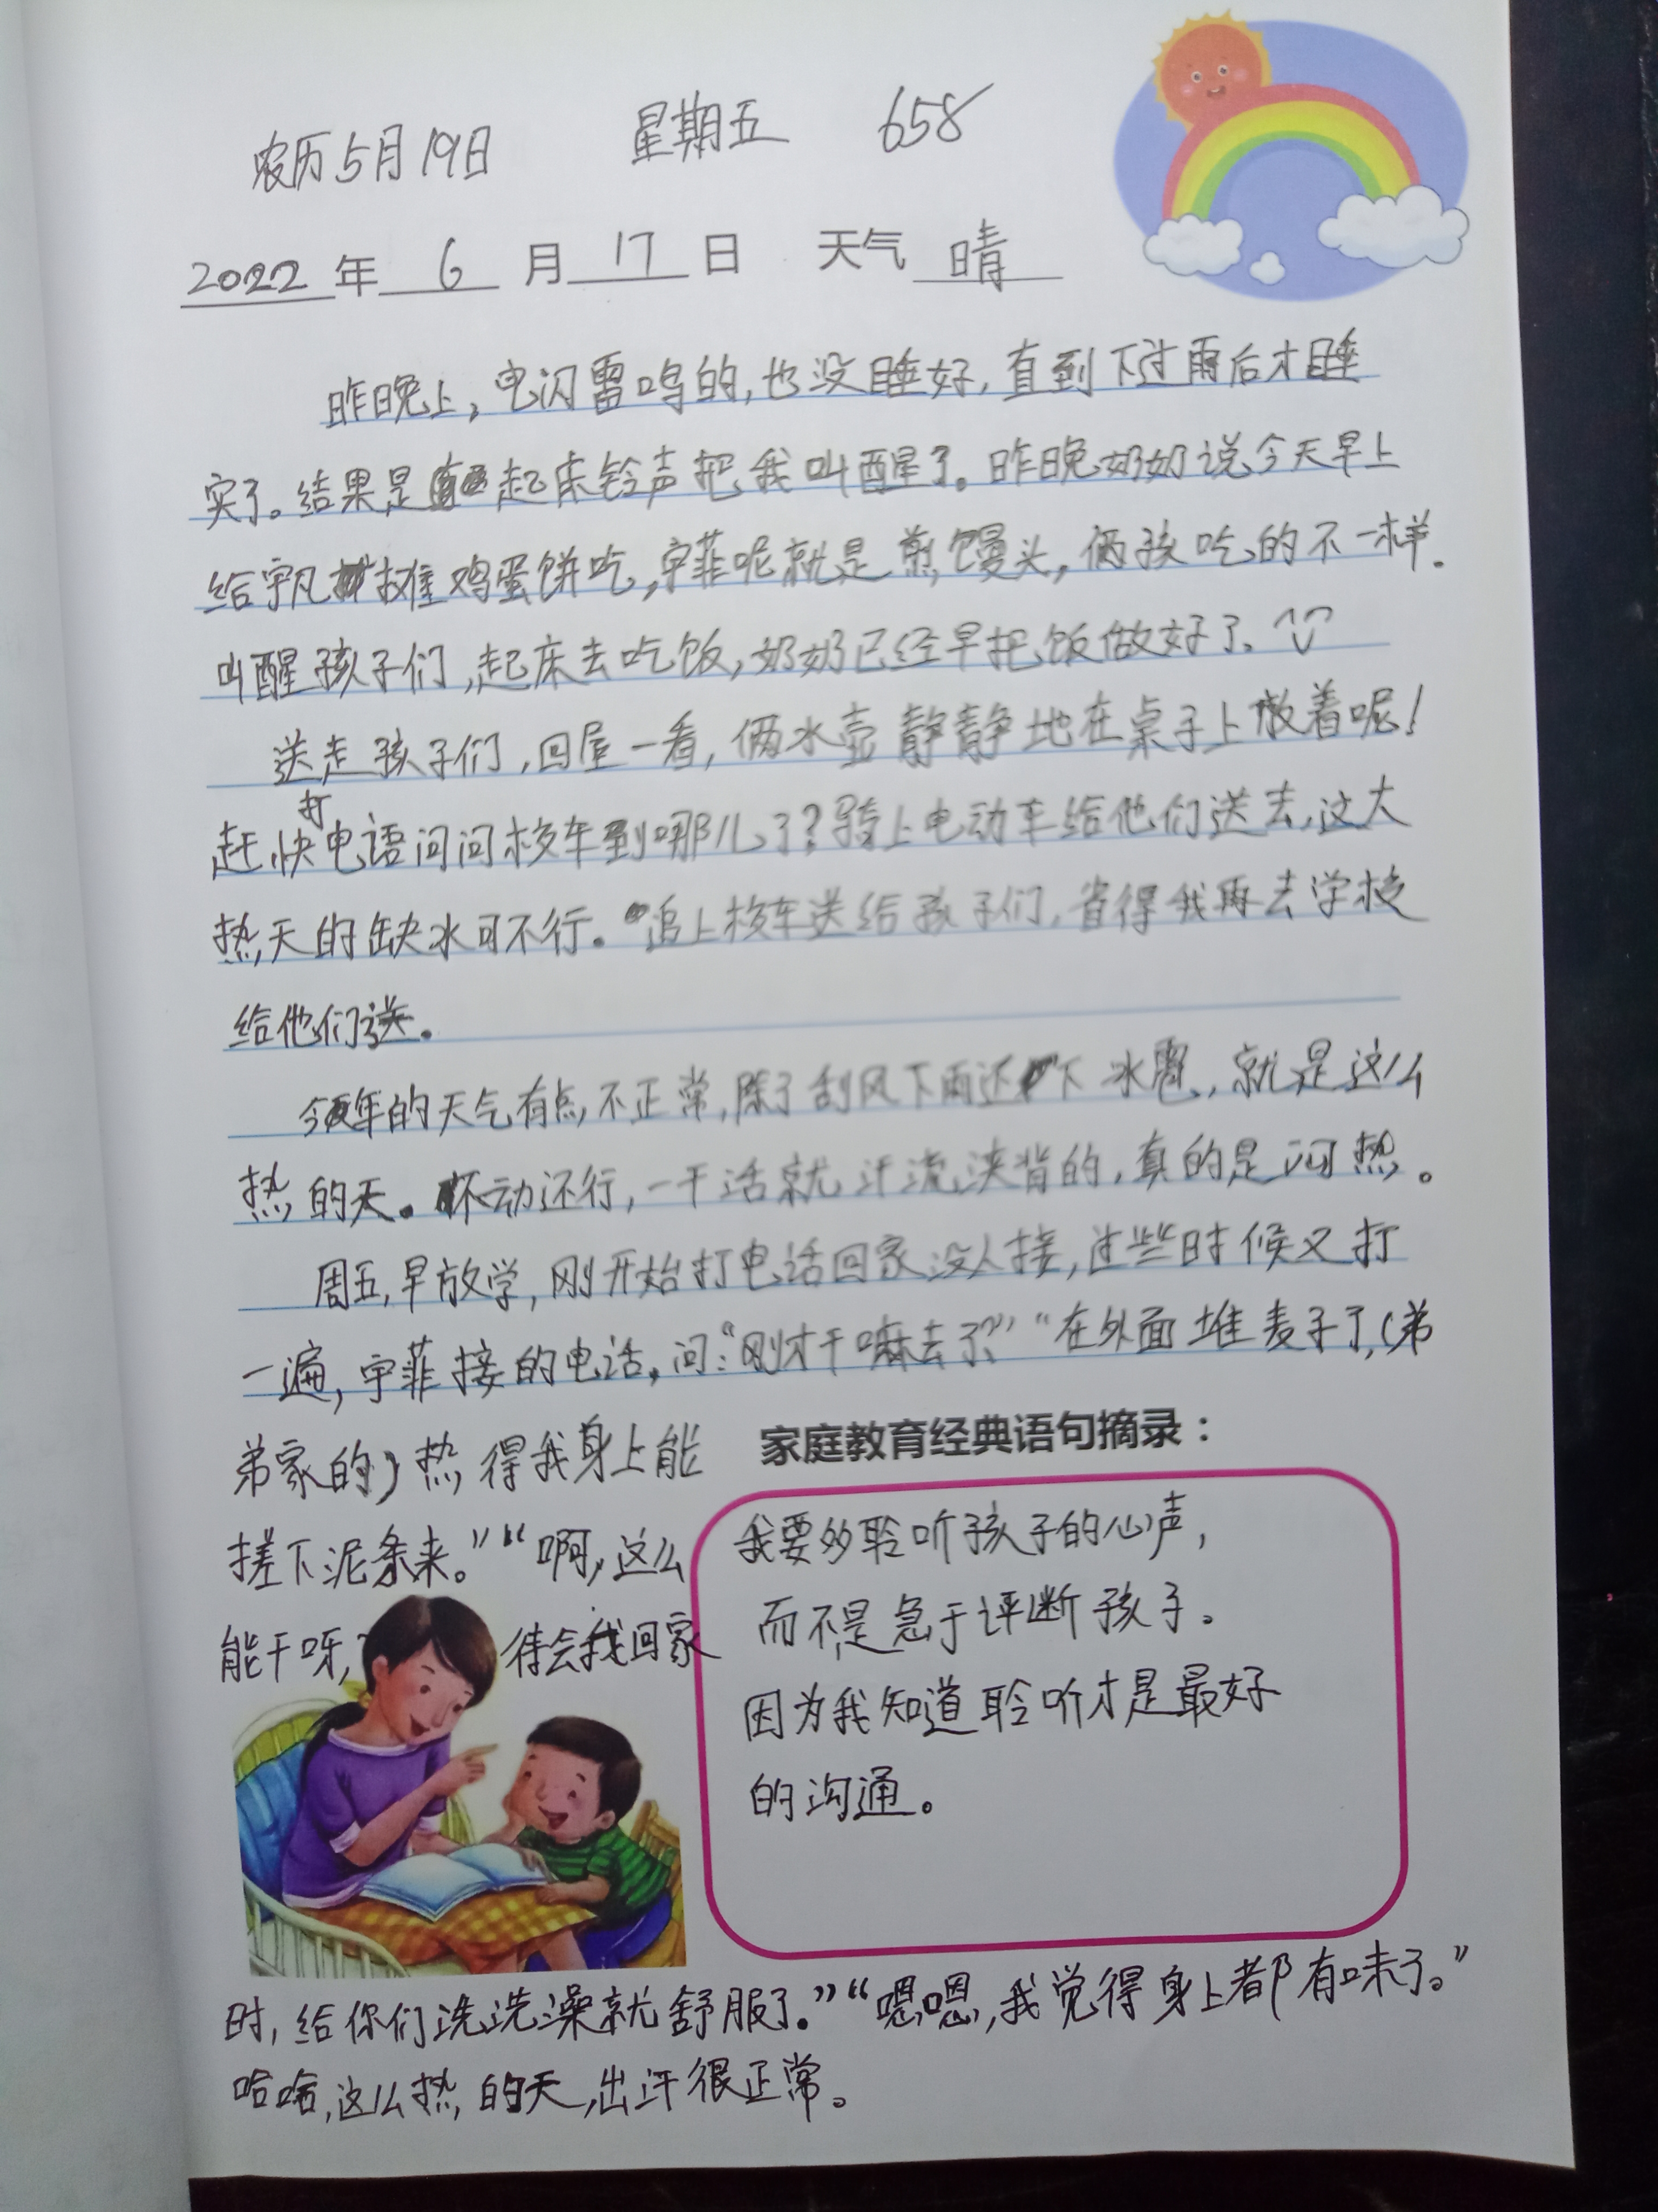 农历5月19日 星期五 658
2022年 6 月 17 日 天气 晴
昨晚上,电闪雷鸣的,也没睡好,直到下过雨后才睡
实了。结果是起床铃声把我叫醒了。昨晚奶奶说今天早上
给宇凡摊鸡蛋饼吃,宇菲呢就是煎馒头,俩孩吃的不一样.
叫醒孩子们,起床去吃饭,奶奶已经早把饭做好了.
送走孩子们,回屋一看,俩水壶静静地在桌子上放着呢!
赶快打电语问问校车到哪儿了?骑上电动车给他们送去,这大
热天的缺水可不行。追上校车送给孩子们,省得我再去学校
给他们送.
今年的天气有点不正常,除了刮风下雨还下冰雹,就是这么
热的天.不动还行,一干活就汗流浃背的,真的是闷热。
周五,早放学,刚开始打电话回家没人接,过些时候又打
一遍,宇菲接的电话,问:“刚才干嘛去了?”“在外面堆麦子了,(弟
弟家的)热得我身上能
搓下泥条来。”“啊,这么
能干呀, 待会我回家
时,给你们洗洗澡就舒服了.”“嗯嗯,我觉得身上都有味了。”
哈哈,这么热的天,出汗很正常。
家庭教育经典语句摘录:
我要多聆听孩子的心声,
而不是急于评断孩子.
因为我知道聆听才是最好
的沟通。